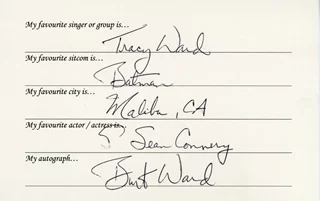 My favourite singer or group is...
Tracy Ward
My favourite sitcom is...
Batman
My favourite city is...
Malibu, CA
My favourite actor / actress is...
Sean Connery
My autograph...
Burt Ward